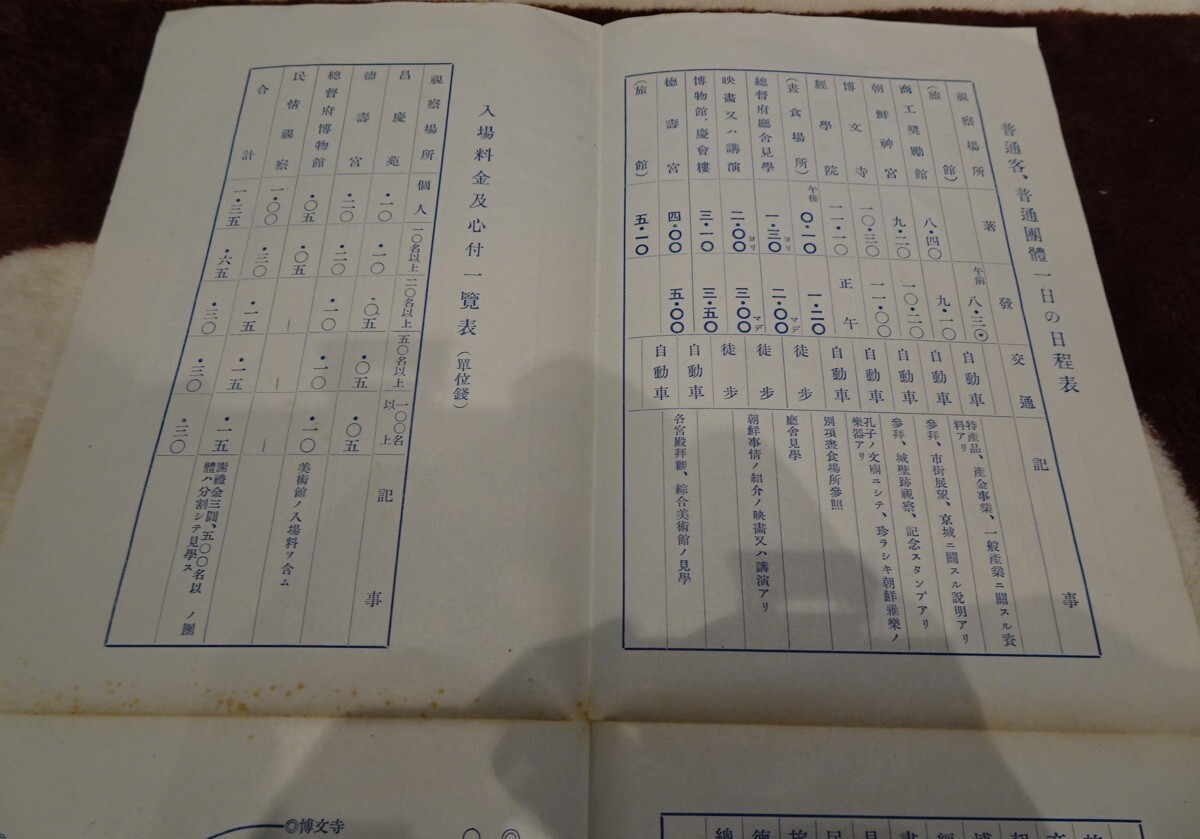 普通客、普通團體一日の日程表
視察場所 著 發 交通 記事
(旅館) 午前 八・三〇 自動車
商工奬勵館 八・四〇 九・一〇 自動車 特産品、産金事業、一般産業ニ關スル資料アリ
朝鮮神宮 九・二〇 一〇・二〇 自動車 參拜、市街展望、京城ニ關スル説明アリ
博文寺 一〇・三〇 一一・〇〇 自動車 參拜、城壁跡視察、記念スタンプアリ
經學院 一一・一〇 正午 自動車 孔子ノ文廟ニシテ、珍ラシキ朝鮮雅樂ノ樂器アリ
(晝食場所) 午後 〇・一〇 一・二〇 徒歩 別項晝食場所參照
總督府廳舍見學 一・三〇ヨリ 二・〇〇マデ 徒歩 廳舍見學
映畫又ハ講演 二・〇〇ヨリ 三・〇〇マデ 徒歩 朝鮮事情ノ紹介ノ映畫又ハ講演アリ
博物館、慶會樓 三・一〇 三・五〇 自動車
德壽宮 四・〇〇 五・〇〇 自動車 各宮殿拜觀、綜合美術館ノ見學
(旅館) 五・一〇
入場料金及心付一覽表(單位錢)
視察場所 個人 一〇名以上 二〇名以上 五〇名以上 一〇〇名以上 記事
昌慶苑 ・一〇 ・一〇 ・〇五 ・〇五 ・〇五
德壽宮 ・二〇 ・二〇 ・一〇 ・一〇 ・一〇 美術館ノ入場料ヲ含ム
總督府博物館 ・〇五 ・〇五 — — —
民情視察 一・〇〇 ・三〇 ・一五 ・一五 ・一五 謝禮金三圓、五〇〇名以 ノ團體ハ分割シテ見學ス
合計 一・三五 ・六五 ・三〇 ・三〇 ・三〇
◎博文寺